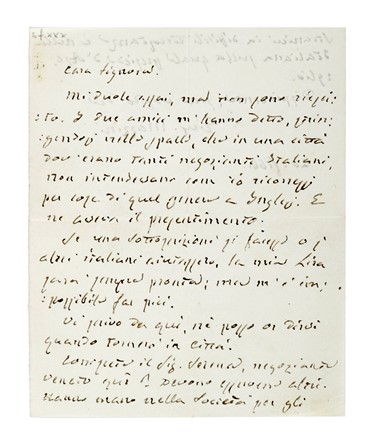 Cara Signora.
Mi duole assai, ma non sono riesci:
:to. I due amici m'hanno detto, strin:
:gendosi nelle spalle, che in una città
dov'erano tanti negozianti Italiani,
non intendevano com'io ricorressi
per cose di quel genere a Inglesi. E
ne aveva il presentimento.
Se una sottoscrizione si facesse o s'
altri italiani aiutassero, la mia Lira
sarà sempre pronta; ma m'è im:
:possibile far più.
Vi scrivo da qui, nè posso or dirvi
quando tornerò in città.
Conoscete il Sig. Serena, negoziante
veneto qui? Devono esservene altri.
Hanno mano nella Società per gli